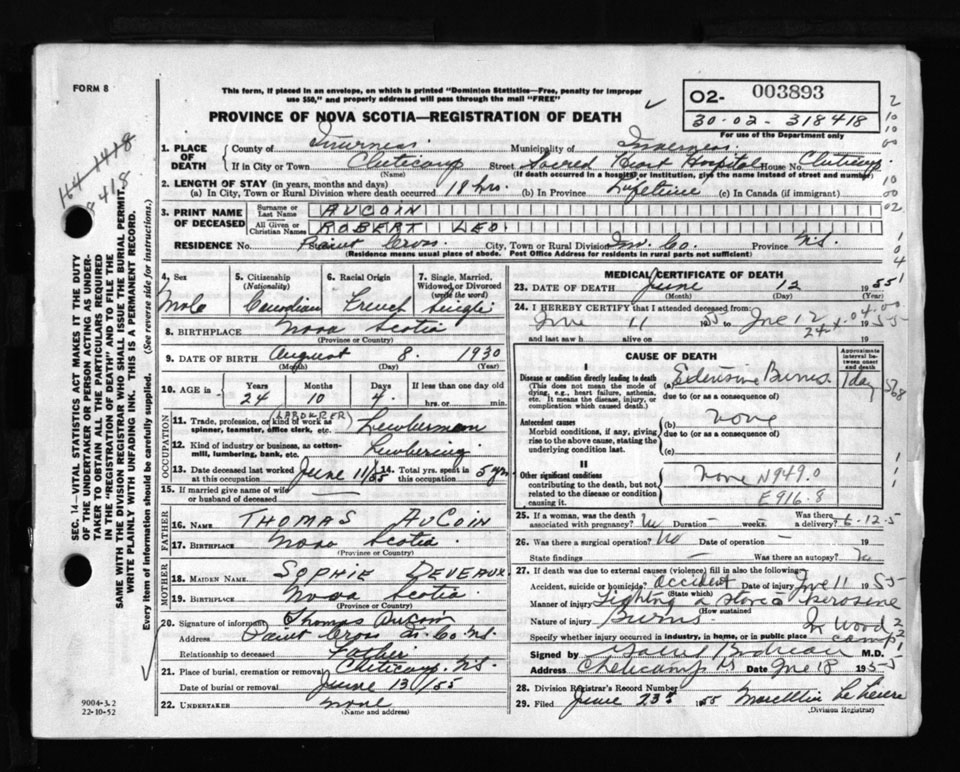 FORM 8
This form, if placed in an envelope, on which is printed "Dominion Statistics—Free, penalty for improper
use $50," and properly addressed will pass through the mail "FREE"
PROVINCE OF NOVA SCOTIA—REGISTRATION OF DEATH
O2- 003893
30-02-318418
For use of the Department only
SEC. 14—VITAL STATISTICS ACT MAKES IT THE DUTY
OF THE UNDERTAKER OR PERSON ACTING AS UNDER-
TAKER TO OBTAIN ALL THE PARTICULARS REQUIRED
IN THE "REGISTRATION OF DEATH" AND TO FILE THE
SAME WITH THE DIVISION REGISTRAR WHO SHALL ISSUE THE BURIAL PERMIT.
WRITE PLAINLY WITH UNFADING INK. THIS IS A PERMANENT RECORD.
Every item of information should be carefully supplied. (See reverse side for instructions.)
1. PLACE OF DEATH
County of Inverness Municipality of Inverness
If in City or Town Cheticamp Street Sacred Heart Hospital House No. Cheticamp
(Name) (If death occurred in a hospital or institution, give the name instead of street and number)
2. LENGTH OF STAY (in years, months and days)
(a) In City, Town or Rural Division where death occurred 18 hrs. (b) In Province Lifetime (c) In Canada (if immigrant)
3. PRINT NAME OF DECEASED
Surname or Last Name AUCOIN
All Given or Christian Names ROBERT LEO
RESIDENCE No. Point Cross City, Town or Rural Division Inv. Co. Province N.S.
(Residence means usual place of abode. Post Office Address for residents in rural parts not sufficient)
4. Sex 5. Citizenship (Nationality) 6. Racial Origin 7. Single, Married, Widowed or Divorced (write the word)
Male Canadian French Single
8. BIRTHPLACE Nova Scotia
(Province or Country)
9. DATE OF BIRTH August 8. 1930
(Month) (Day) (Year)
10. AGE in Years Months Days If less than one day old
24 10 4. hrs. or min.
OCCUPATION
(LABOURER)
11. Trade, profession, or kind of work as spinner, teamster, office clerk, etc. Lumberman
12. Kind of industry or business, as cotton-mill, lumbering, bank, etc. Lumbering
13. Date deceased last worked at this occupation June 11/55 14. Total yrs. spent in this occupation 5 yrs
15. If married give name of wife or husband of deceased —
FATHER
16. NAME THOMAS AUCOIN
17. BIRTHPLACE Nova Scotia
(Province or Country)
MOTHER
18. MAIDEN NAME SOPHIE DEVEAUX
19. BIRTHPLACE Nova Scotia
(Province or Country)
20. Signature of informant Thomas Aucoin
Address Point Cross In. Co. N.S.
Relationship to deceased Father
21. Place of burial, cremation or removal Cheticamp, N.S.
Date of burial or removal June 13/55
22. UNDERTAKER none
(Name and address)
9004-3.2
22-10-52
MEDICAL CERTIFICATE OF DEATH
23. DATE OF DEATH June 12 1955
(Month) (Day) (Year)
24. I HEREBY CERTIFY that I attended deceased from
June 11 to Jne 12 1955
and last saw h alive on 19
CAUSE OF DEATH
Approximate interval between onset and death
I
Disease or condition directly leading to death
(This does not mean the mode of dying, e.g., heart failure, asthenia, etc. It means the disease, injury, or complication which caused death.)
(a) Extensive Burns 1 day
due to (or as a consequence of)
Antecedent causes
Morbid conditions, if any, giving rise to the above cause, stating the underlying condition last.
(b) none
due to (or as a consequence of)
(c)
II
Other significant conditions
contributing to the death, but not related to the disease or condition causing it.
none N949.0
E916.8
25. If a woman, was the death associated with pregnancy? Duration — weeks. Was there a delivery? 6-12-5
26. Was there a surgical operation? No Date of operation — 19
State findings — Was there an autopsy? No
27. If death was due to external causes (violence) fill in also the following:
Accident, suicide or homicide? Accident Date of injury Jne 11 1955
(State which)
Manner of injury Lighting a stove kerosene
(How sustained)
Nature of injury Burns In Wood camp
Specify whether injury occurred in industry, in home, or in public place
Signed by Bodreau M.D.
Address Cheticamp NS Date Jne 18 1955
28. Division Registrar's Record Number
29. Filed June 23rd 1955 Marcellin
(Division Registrar)